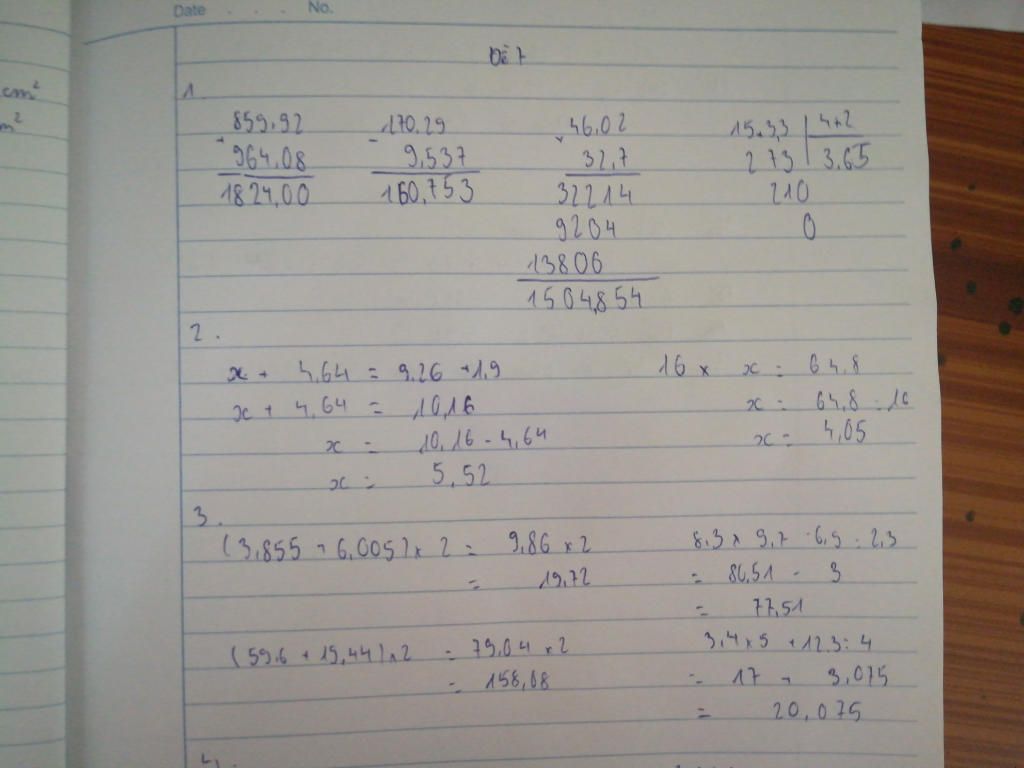 Date . . . . No.
cm²
m²
Đề 7
1
859,92 170,29 46,02 15,33 4,2
+ - ×
964,08 9,537 32,7 273 3,65
1824,00 160,753 32214 210
9204 0
13806
1504,854
2.
x + 4,64 = 9,26 + 1,9 16 × x = 64,8
x + 4,64 = 10,16 x = 64,8 : 16
x = 10,16 - 4,64 x = 4,05
x = 5,52
3.
(3,855 + 6,005) × 2 = 9,86 × 2 8,3 × 9,7 - 6,9 : 2,3
= 19,72 = 80,51 - 3
= 77,51
(59,6 + 19,44) × 2 = 79,04 × 2 3,4 × 5 + 12,3 : 4
= 158,08 = 17 + 3,075
= 20,075